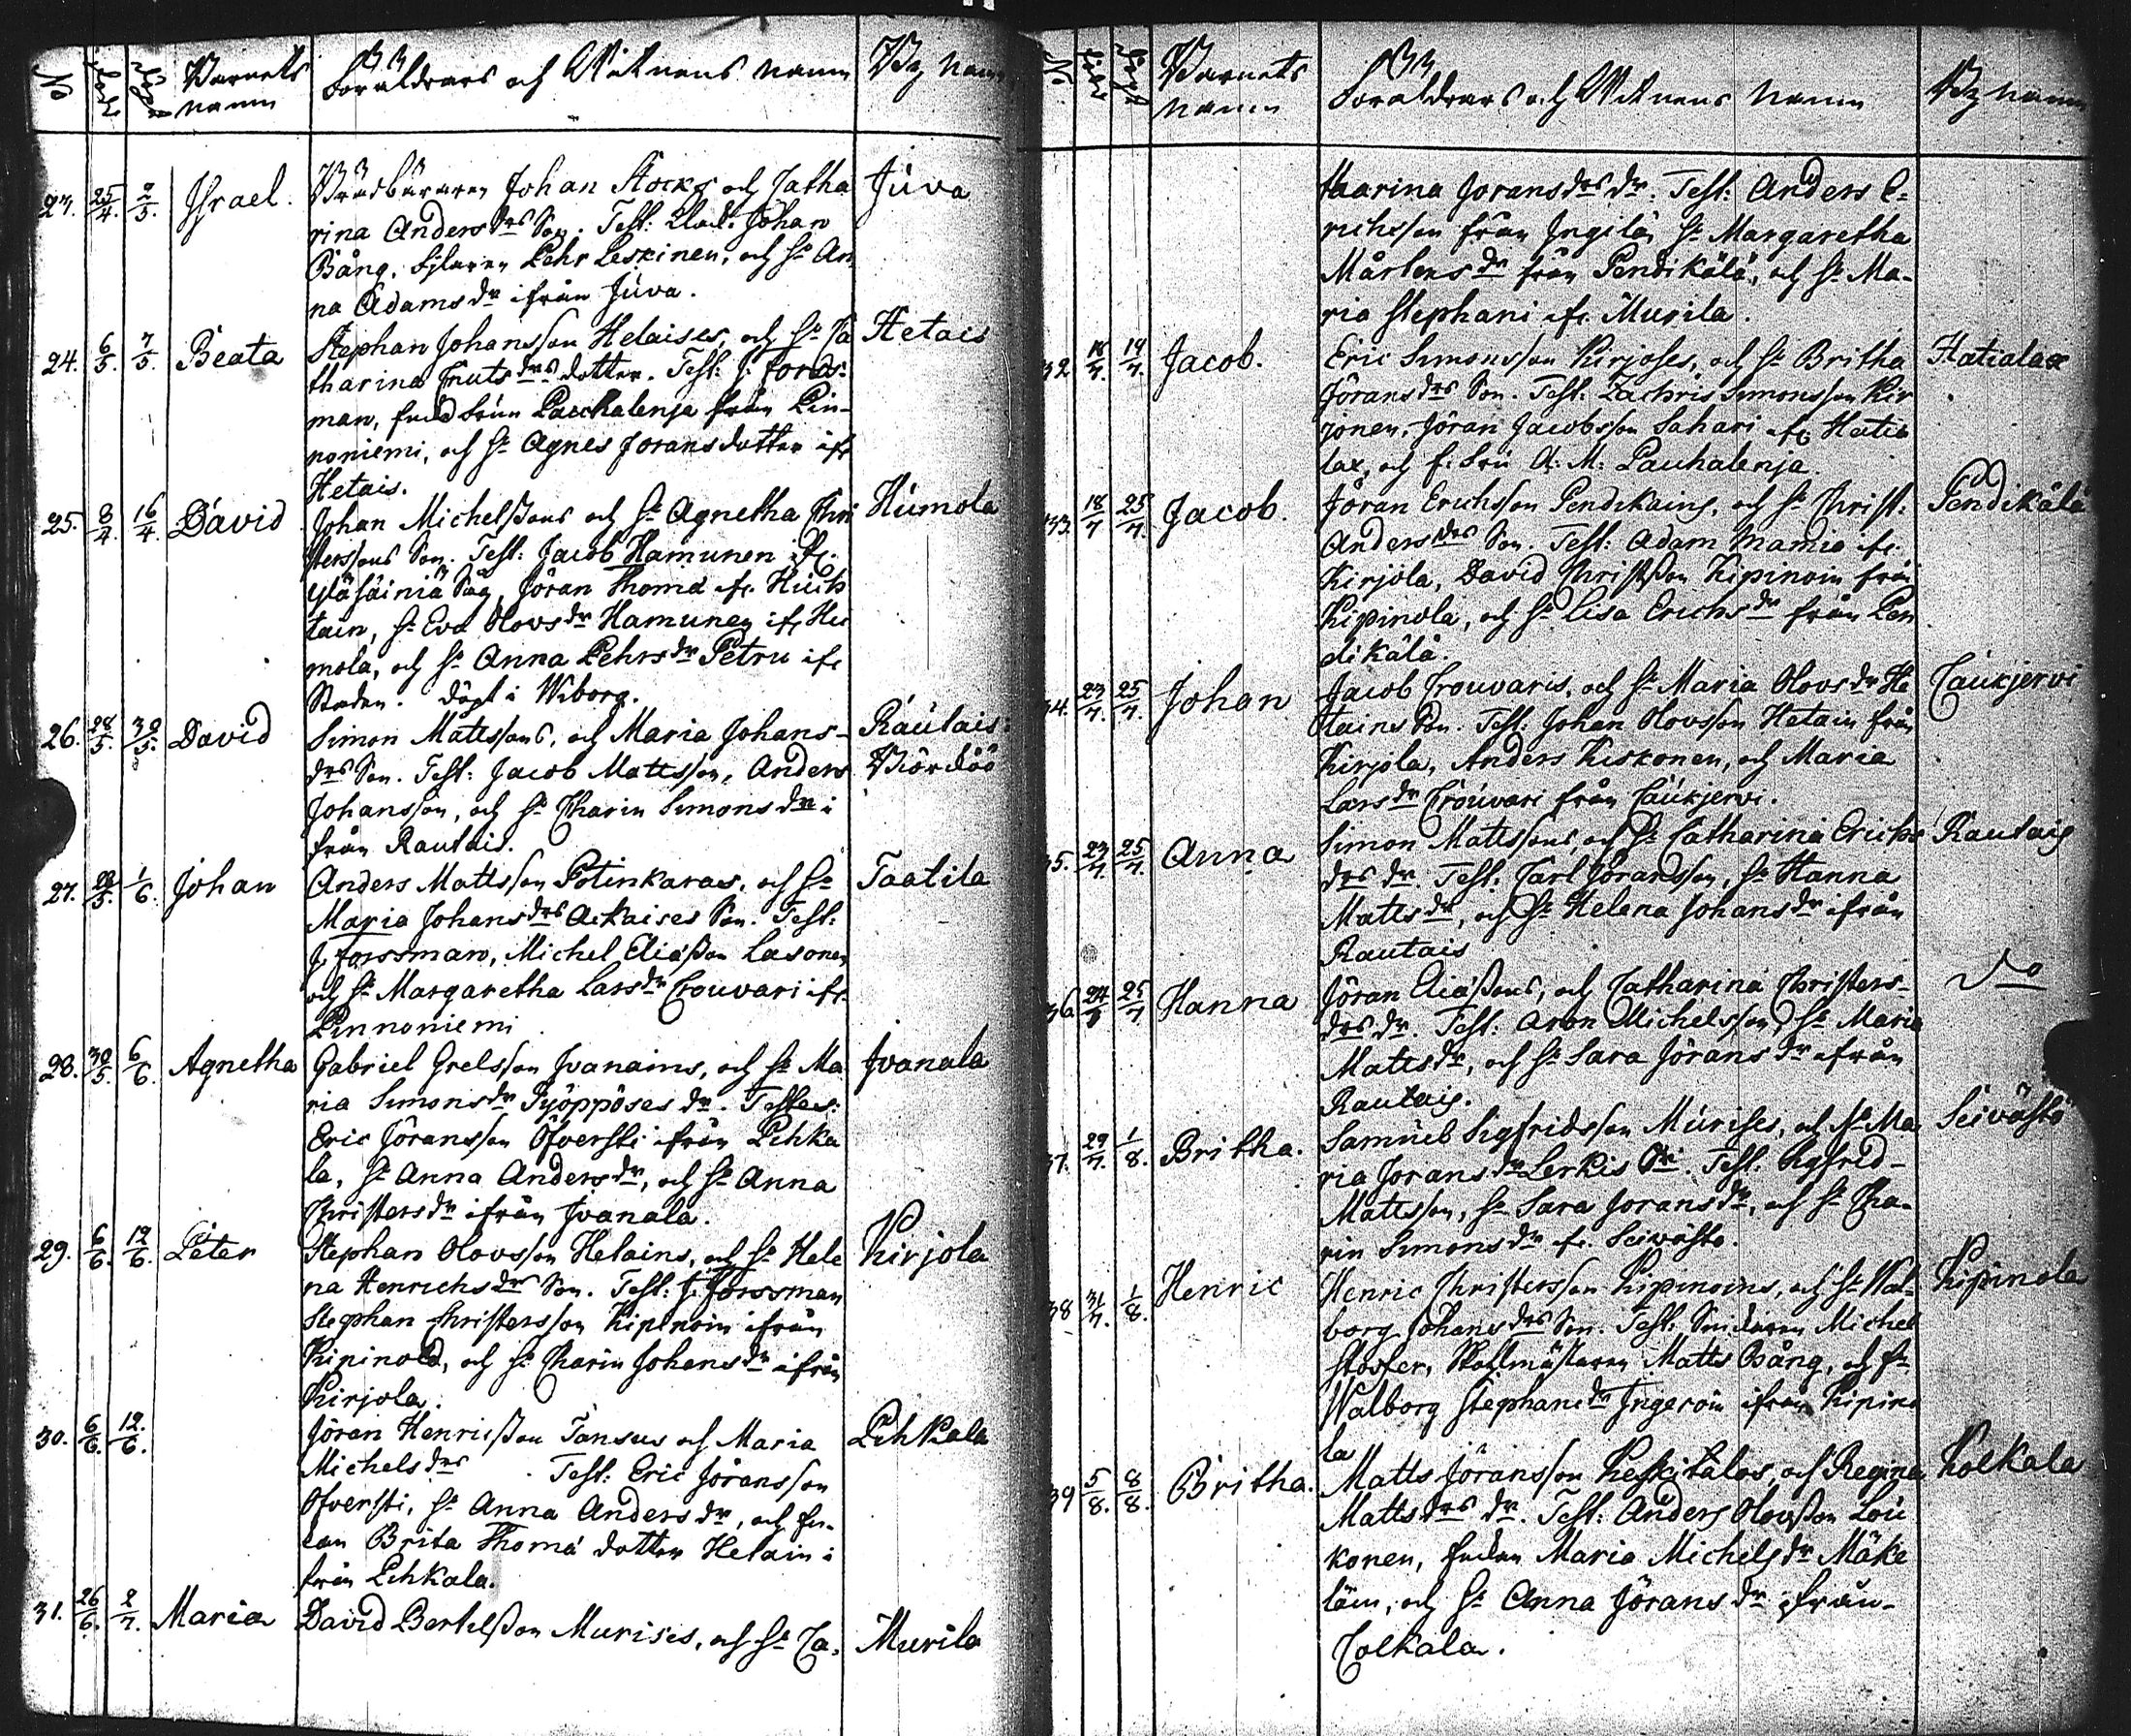 No Född Döpt Barnets namn Föräldrars och Witnens namn By namn
23. 25/4. 2/5. Israel. Johan Stocks och Catha Juva
rina Andersdrs Son. Test: Johan
Bång, Pehr Leskinen, och Ha An
na Adamsdr ifrån Juva.
24. 6/5. 7/5. Beata Stephan Johansson Helaises, och Ha Ca Hetais
tharina Knutsdrs dotter. Test: J. Forss-
man, Pauhalenja från Pin-
noniemi, och Ha Agnes Joransdotter ifr
Hetais.
25. 8/4. 16/4. David Johan Michelssons och Ha Agnetha Chri Humola
sterssons Son. Test: Jacob Hamunen ifr.
Såg, Jöran Thomæ ifr.
tain, Ha Eva Olovsdr Hamunen ifr Hu
mola, och Ha Anna Pehrsdr Petru ifr
Staden. döpt i Wiborg.
26. 28/5. 30/5. David Simon Mattssons, och Maria Johans- Rautais:
drs Son. Test: Jacob Mattsson, Anders Biörköö
Johansson, och Ha Charin Simonsdr i
från Rautais.
27. 28/5. 1/6. Johan Anders Mattsson Potinkaras, och Ha Taatila
Maria Johansdrs Ackaises Son. Test:
J. Forssman, Michel Eliæsson Lasonen
och Ha Margaretha Larsdr Crouvari ifr.
Pinnoniemi
28. 30/5. 6/6. Agnetha Gabriel Grelsson Ivanains, och Ha Ma Ivanala
ria Simonsdr Pyöppöses dr. Testes:
Eric Jöransson Öfversti ifrån Pihka
la, Ha Anna Andersdr, och Ha Anna
Christersdr ifrån Ivanala.
29. 6/6. 12/6. Peter Stephan Olovsson Helains, och Ha Hele Kirjola
na Henrichsdrs Son. Test: J. Forssman
Stephan Christersson Kipinoin ifrån
Kipinola, och Ha Charin Johansdr ifrån
Kirjola.
30. 6/6. 12/6. Jöran Henricsson Tansus och Maria Pihkala
Michelsdrs Test: Eric Jöransson
Öfversti, Ha Anna Andersdr, och
Brita Thomæ dotter Helain i
från Pihkala.
31. 26/6. 2/7. Maria David Bertelsson Murises, och Ha Ca- Murila
No Född Döpt Barnets namn Föräldrars och Witnens namn By namn
tharina Joransdrs dr. Test: Anders E-
richsson från Ingilä, Ha Margaretha
Mårtensdr från Pendikälä, och Ha Ma-
ria Stephani ifr. Murila.
32 14/7. Jacob. Eric Simonsson Kirjoses, och Ha Britha Hatialax
Jöransdrs Son. Test: Zachris Simonsson Kir
jonen, Jöran Jacobsson Sahari ifr. Hatia
lax, och A: M: Pauhalenja.
33. 18/7 25/7. Jacob. Jöran Erichsson Pendikains, och Ha Christ: Pendikälä
Andersdrs Son. Test: Adam Mamio ifr.
Kirjola, David Christsson Kipinoin från
Kipinola, och Ha Lisa Erichsdr från Pen
dikälä.
34. 23/7. 25/7. Johan Jacob Crouvaris, och Ha Maria Olovsdr He Caukjervi
tains Son. Test: Johan Olovsson Hetain från
Kirjola, Anders Kiskonen, och Maria
Larsdr Crouvari från Caukjervi.
35. 23/7. 25/7. Anna Simon Mattssons, och Ha Catharina Erichs Rautais
drs dr. Test: Carl Jöransson, Ha Hanna
Mattsdr, och Ha Helena Johansdr ifrån
Rautais
36. 25/7 Hanna Jöran Eliæssons, och Catharina Christers- Do
drs dr. Test: Aron Michelsson, Ha Maria
Mattsdr, och Ha Sara Jöransdr ifrån
Rautais.
37. 29/7. 1/8. Britha. Samuel Sigfridsson Murises, och Ha Ma Seivästö
ria Joransdr Lerkis dr. Test: Sigfrid
Mattsson, Ha Sara Joransdr, och Ha Cha-
rin Simonsdr ifr. Seivästö.
38 31/7. 1/8. Henric Henric Christersson Kipinoins, och Ha Wal- Kipinola
borg Johansdrs Son. Test: Michel
Matts Bång, och Ha
Walborg Stephansdr Ingeroin ifrån Kipino
la
39 5/8. 8/8. Britha. Matts Jöransson Keskitalos, och Regina Kolkala
Mattsdrs dr. Test: Anders Olovsson Lou
konen, Maria Michelsdr Mäke
läin, och Ha Anna Jöransdr ifrån
Colkala.